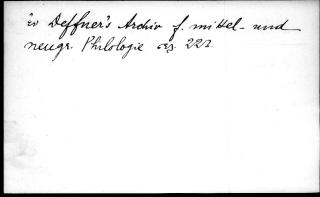 in Deffner's Archiv f. mittel- und
neugr. Philologie p. 221.